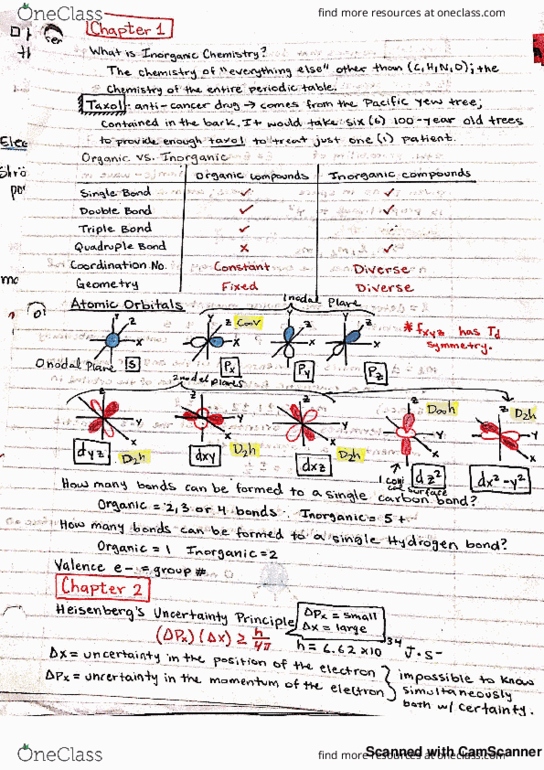 OneClass
find more resources at oneclass.com
Chapter 1
What is Inorganic Chemistry?
The chemistry of "everything else" other than (C,H,N,O); the
chemistry of the entire periodic table.
Taxol: anti-cancer drug → comes from the Pacific yew tree;
contained in the bark. It would take six (6) 100-year old trees
to provide enough taxol to treat just one (1) patient.
Organic vs. Inorganic
Organic compounds Inorganic compounds
Single Bond ✓ ✓
Double Bond ✓ ✓
Triple Bond ✓
Quadruple Bond x ✓
Coordination No. Constant Diverse
Geometry Fixed Diverse
Atomic Orbitals
1 nodal plane
C∞v
* fxyz has Td
symmetry.
0 nodal plane S Px Py Pz
2 nodal planes
dyz D2h dxy D2h dxz D2h dz² D∞h dx²-y² D2h
surface
How many bonds can be formed to a single carbon bond?
Organic = 2, 3 or 4 bonds Inorganic = 5+
How many bonds can be formed to a single Hydrogen bond?
Organic = 1 Inorganic = 2
Valence e- = group #
Chapter 2
Heisenberg's Uncertainty Principle
ΔPx = small
Δx = large
(ΔPx)(Δx) ≥ h/4π
h = 6.62 x10 34 J·s-
Δx = uncertainty in the position of the electron
ΔPx = uncertainty in the momentum of the eleltron
impossible to know
simultaneously
both w/ certainty.
OneClass
find more resources at oneclass.com
Scanned with CamScanner